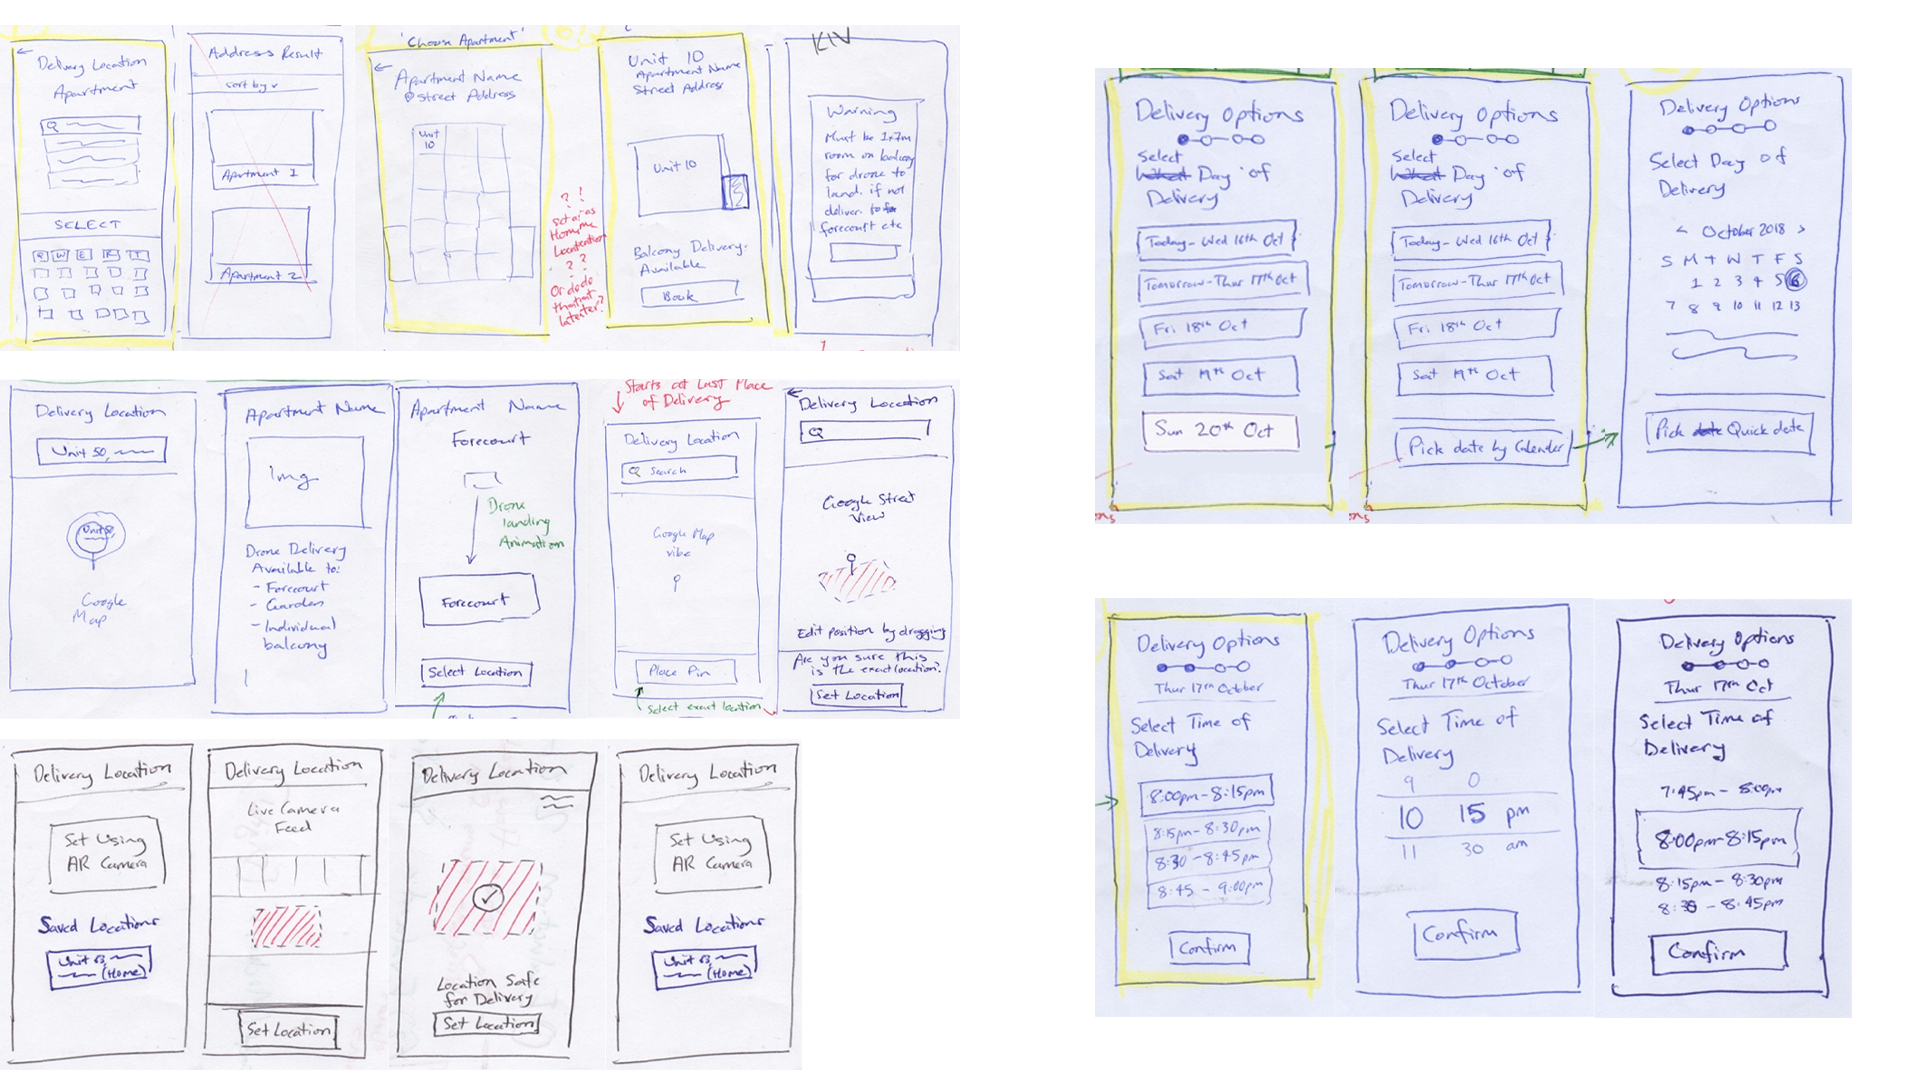 Delivery Location
Apartment
Q
SELECT
Q W E R T
Address Result
sort by v
Apartment 1
Apartment 2
'Choose Apartment'
Apartment Name
@ Street Address
Unit
10
? ?
set as
Home
Location
? ?
Or do do
that at
later?
Unit 10
Apartment Name
Street Address
Unit 10
Balcony Delivery
Available
Book
KIV
Warning
Must be
room on balcony
for drone to
land. if not
deliver. to
forecourt etc
Delivery Location
Unit 50,
Google
Map
Apartment Name
Img
Drone Delivery
Available to:
- Forecourt
- Garden
- Individual
balcony
Apartment Name
Forecourt
Drone
landing
Animation
Forecourt
Select Location
Starts at Last Place
of Delivery
Delivery Location
Q Search
Google Map
vibe
Place Pin
Select exact location
Delivery Location
Q
Google Street
View
Edit position by dragging
Are you sure this
is the exact location?
Set Location
Delivery Location
Set Using
AR Camera
Saved Locations
(Home)
Delivery Location
Live Camera
Feed
Set Location
Delivery Location
Location Safe
for Delivery
Set Location
Delivery Location
Set Using
AR Camera
Saved Locations
(Home)
Delivery Options
Select
Day of
Delivery
Today - Wed 16th Oct
Tomorrow - Thur 17th Oct
Fri 18th Oct
Sat 19th Oct
Sun 20th Oct
Delivery Options
Select
Day of
Delivery
Today - Wed 16th Oct
Tomorrow - Thur 17th Oct
Fri 18th Oct
Sat 19th Oct
Pick date by Calender
Delivery Options
Select Day of
Delivery
< October 2018 >
S M T W T F S
1 2 3 4 5 6
7 8 9 10 11 12 13
Pick Quick date
Delivery Options
Thur 17th October
Select Time of
Delivery
8:00pm - 8:15pm
8:15pm - 8:30pm
8:30 - 8:45pm
8:45 - 9:00pm
Confirm
Delivery Options
Thur 17th October
Select Time of
Delivery
9 0
10 15 pm
11 30 am
Confirm
Delivery Options
Thur 17th Oct
Select Time of
Delivery
7:45pm - 8:00pm
8:00pm - 8:15pm
8:15pm - 8:30pm
8:30 - 8:45pm
Confirm